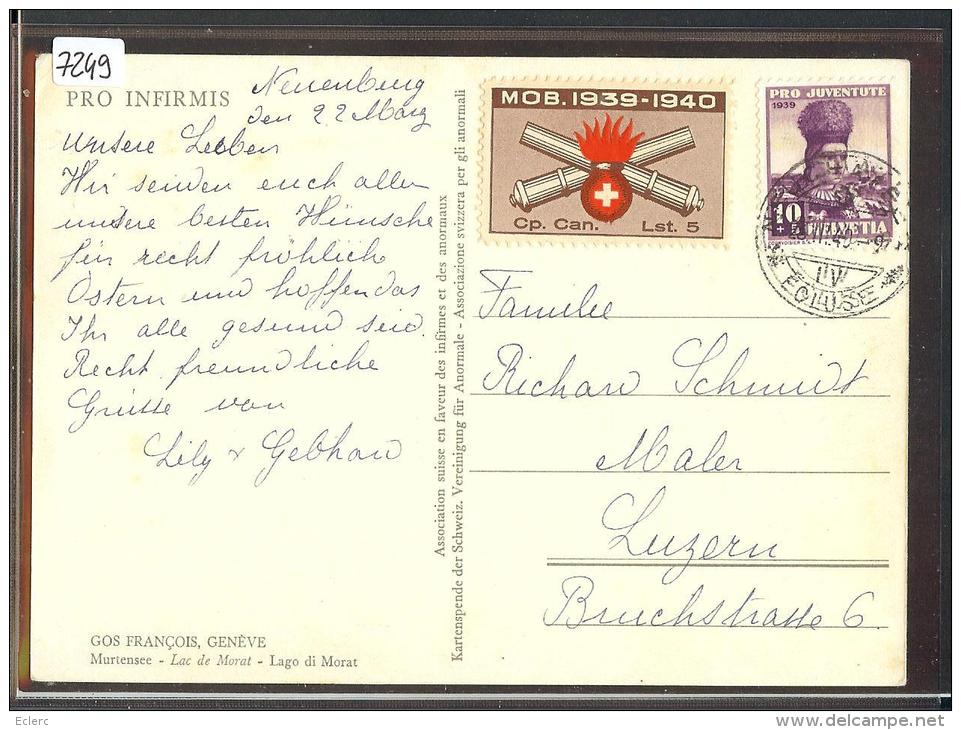 7249
PRO INFIRMIS
Neuenburg
den 22 März
Unsere Lieben
Wir senden euch allen
unsere besten Wünsche
für recht fröhliche
Ostern und hoffen das
Ihr alle gesund seid.
Recht freundliche
Grüsse von
Lily & Gebhard
GOS FRANÇOIS, GENÈVE
Murtensee - Lac de Morat - Lago di Morat
Association suisse en faveur des infirmes et des anormaux
Kartenspende der Schweiz. Vereinigung für Anormale - Associazione svizzera per gli anormali
MOB. 1939-1940
Cp. Can. Lst. 5
PRO JUVENTUTE
1939
10
+ 5
HELVETIA
IV
ECLUSE
Familie
Richard Schmidt
Maler
Luzern
Bruchstrasse 6.
Eclerc
www.delcampe.net